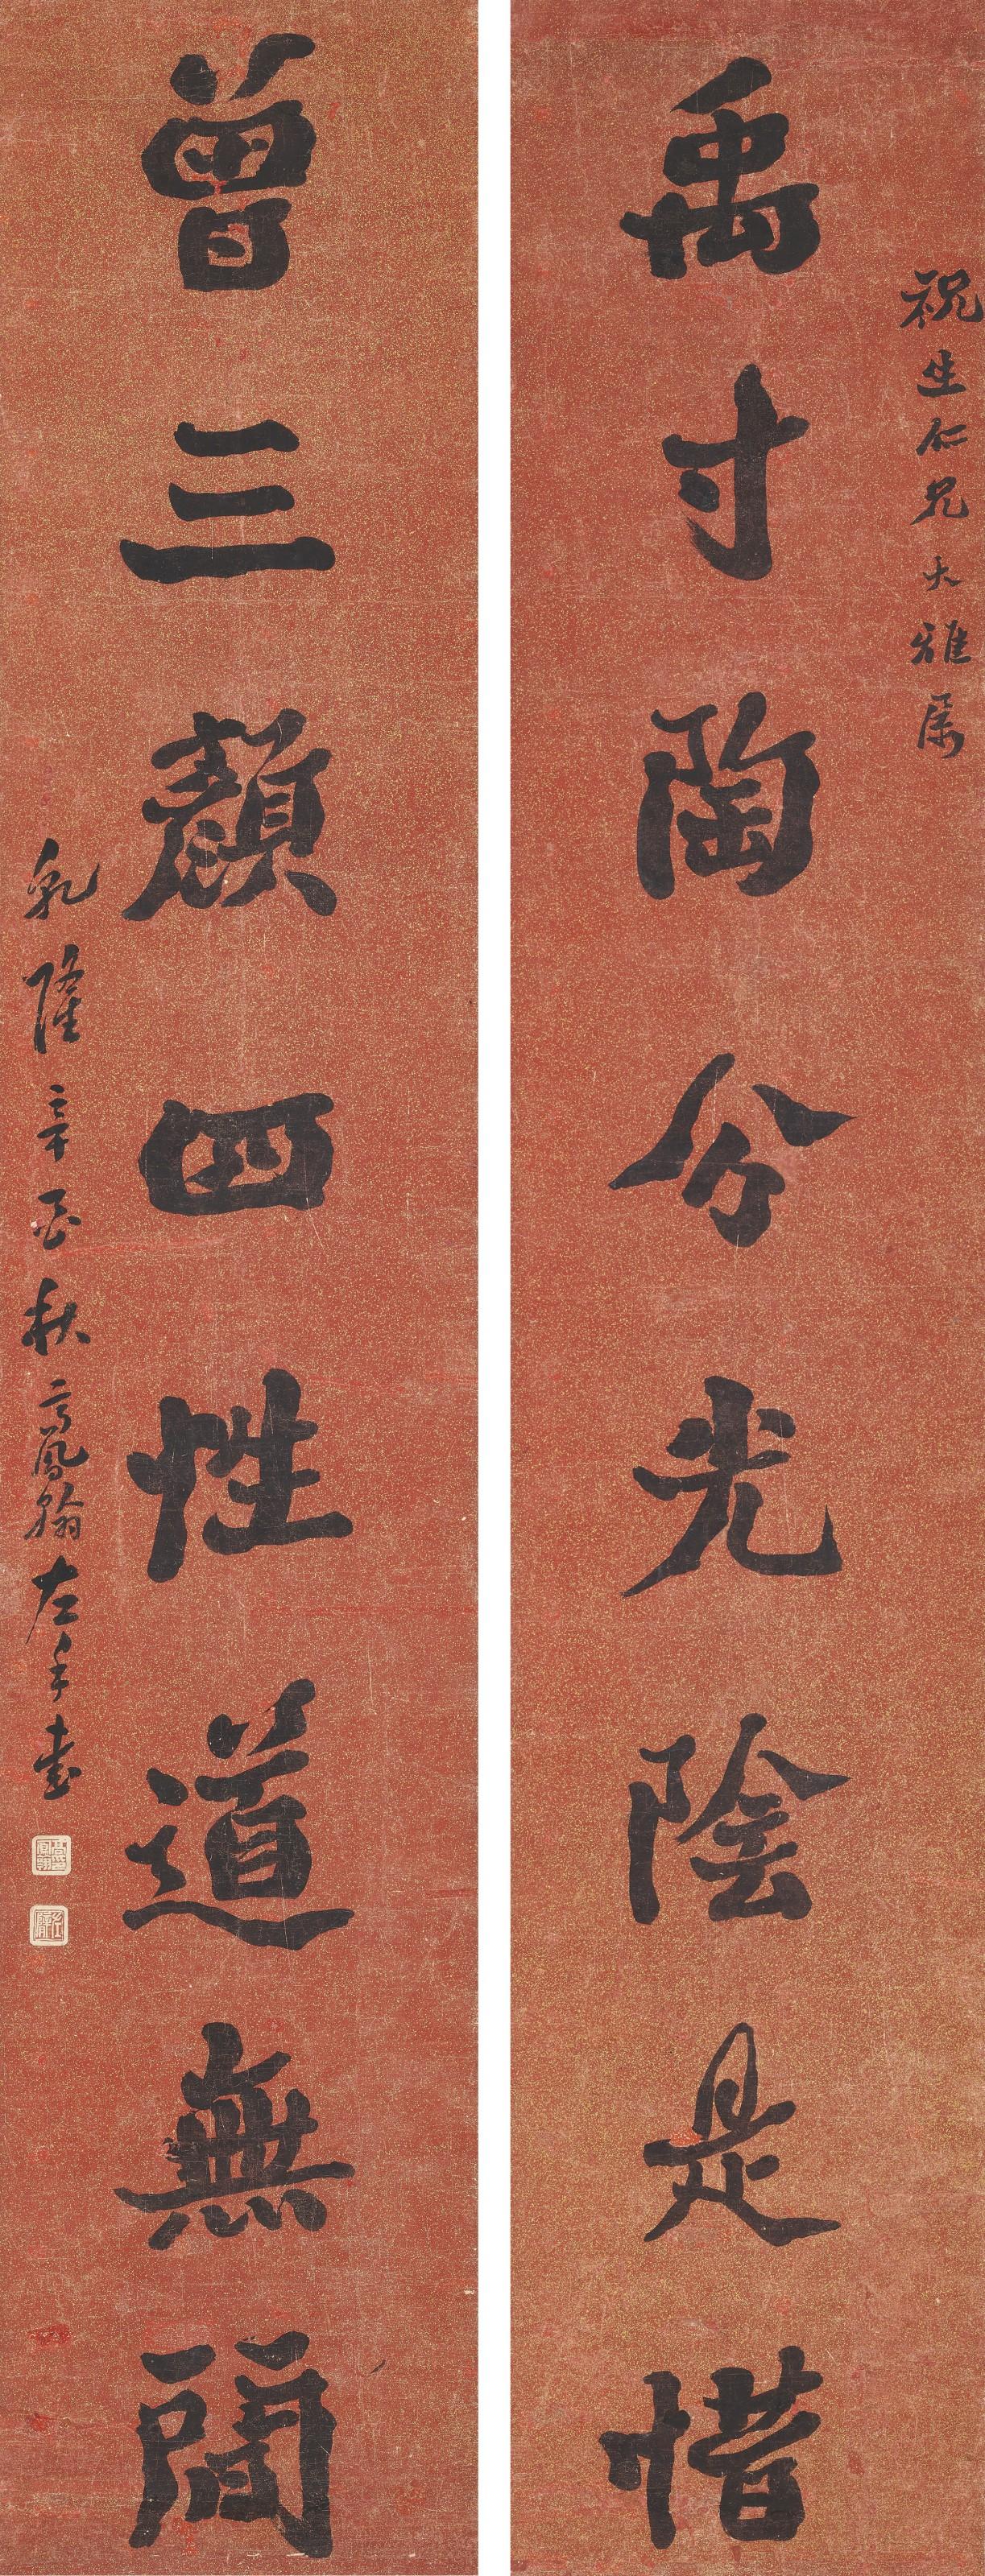 祝生仁兄大雅属
禹寸陶分光陰是惜
曾三顏四性道無間
乾隆辛酉秋高鳳翰左手書